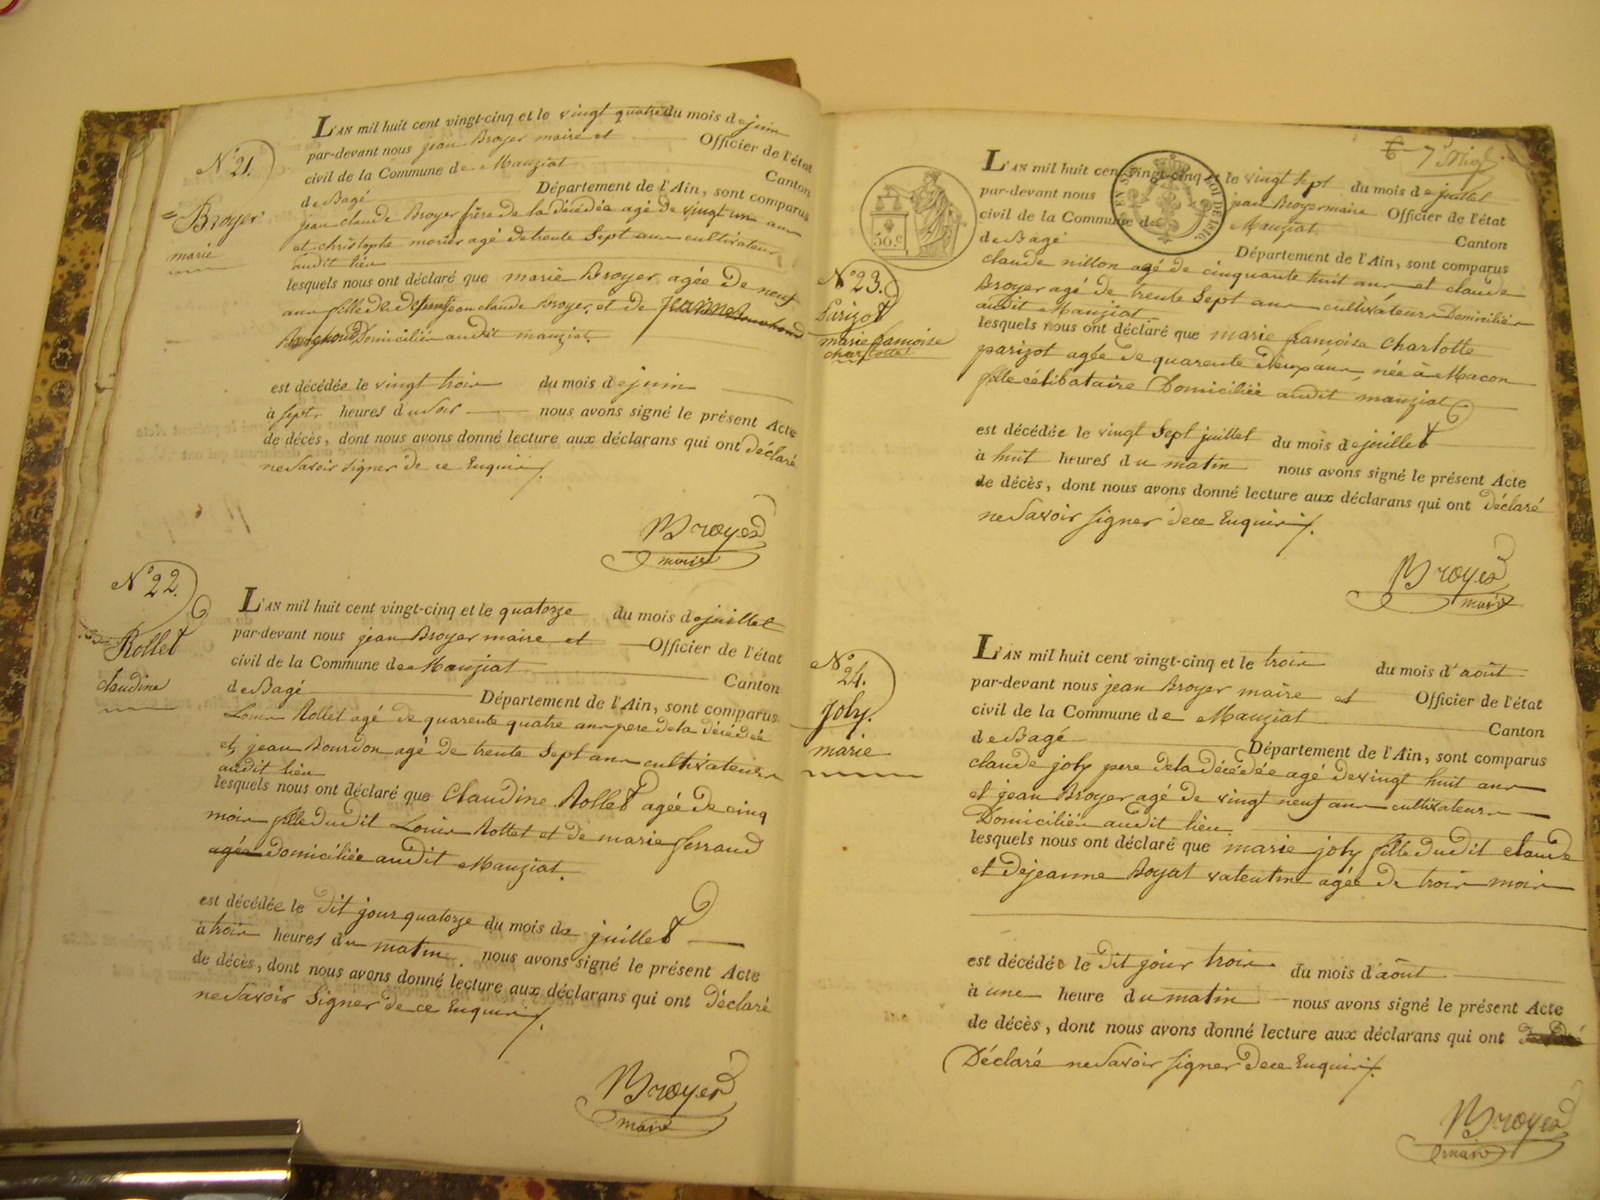 N° 21.
Broyer
marie
L'AN mil huit cent vingt-cinq et le vingt quatre du mois de juin
par-devant nous jean Broyer maire et Officier de l'état
civil de la Commune de Manziat Canton
de Bagé Département de l'Ain, sont comparus
jean claude Broyer frère de la décédée agé de vingt un ans
et christophe morier agé de trente Sept ans cultivateurs
audit lieu
lesquels nous ont déclaré que marie Broyer agée de neuf
ans fille de defunt jean claude Broyer et de jeanne
Domiciliée audit manziat
est décédée le vingt trois du mois de juin
à sept heures du soir nous avons signé le présent Acte
de décès, dont nous avons donné lecture aux déclarans qui ont déclaré
ne Savoir Signer de ce Enquis
Broyer
maire
N° 22.
Rollet
claudine
L'AN mil huit cent vingt-cinq et le quatorze du mois de juillet
par-devant nous jean Broyer maire et Officier de l'état
civil de la Commune de Manziat Canton
de Bagé Département de l'Ain, sont comparus
Louis Rollet agé de quarente quatre ans pere de la décédée
et jean Bourdon agé de trente Sept ans cultivateurs
audit lieu
lesquels nous ont déclaré que Claudine Rollet agée de cinq
mois fille dudit Louis Rollet et de marie ferraud
agée domiciliée audit Manziat.
est décédée le dit jour quatorze du mois de juillet
à trois heures du matin. nous avons signé le présent Acte
de décès, dont nous avons donné lecture aux déclarans qui ont Déclaré
ne Savoir Signer de ce Enquis
Broyer
maire
7
50 c
ROI DE
N° 23.
Parizot
marie françoise
charlotte
L'AN mil huit cent vingt-cinq et le vingt Sept du mois de juillet
par-devant nous jean Broyer maire Officier de l'état
civil de la Commune de Manziat Canton
de Bagé Département de l'Ain, sont comparus
claude nillon agé de cinquante huit ans et claude
Broyer agé de trente Sept ans cultivateurs Domiciliés
audit Manziat
lesquels nous ont déclaré que marie françoise Charlotte
parizot agée de quarente Deux ans, née à Macon
fille célibataire Domiciliée audit manziat
est décédée le vingt Sept juillet du mois de juillet
à huit heures du matin nous avons signé le présent Acte
de décès, dont nous avons donné lecture aux déclarans qui ont Déclaré
ne Savoir Signer de ce Enquis
Broyer
maire
N° 24.
Joly.
marie
L'AN mil huit cent vingt-cinq et le trois du mois d'août
par-devant nous jean Broyer maire et Officier de l'état
civil de la Commune de Manziat Canton
de Bagé Département de l'Ain, sont comparus
claude joly pere de la décédée agé de vingt huit ans
et jean Broyer agé de vingt neuf ans cultivateurs
Domiciliés audit lieu
lesquels nous ont déclaré que marie joly fille dudit claude
et de jeanne Boyat valentin agée de trois mois
est décédée le dit jour trois du mois d'août
à une heure du matin nous avons signé le présent Acte
de décès, dont nous avons donné lecture aux déclarans qui ont
Déclaré ne Savoir Signer de ce Enquis
Broyer
maire